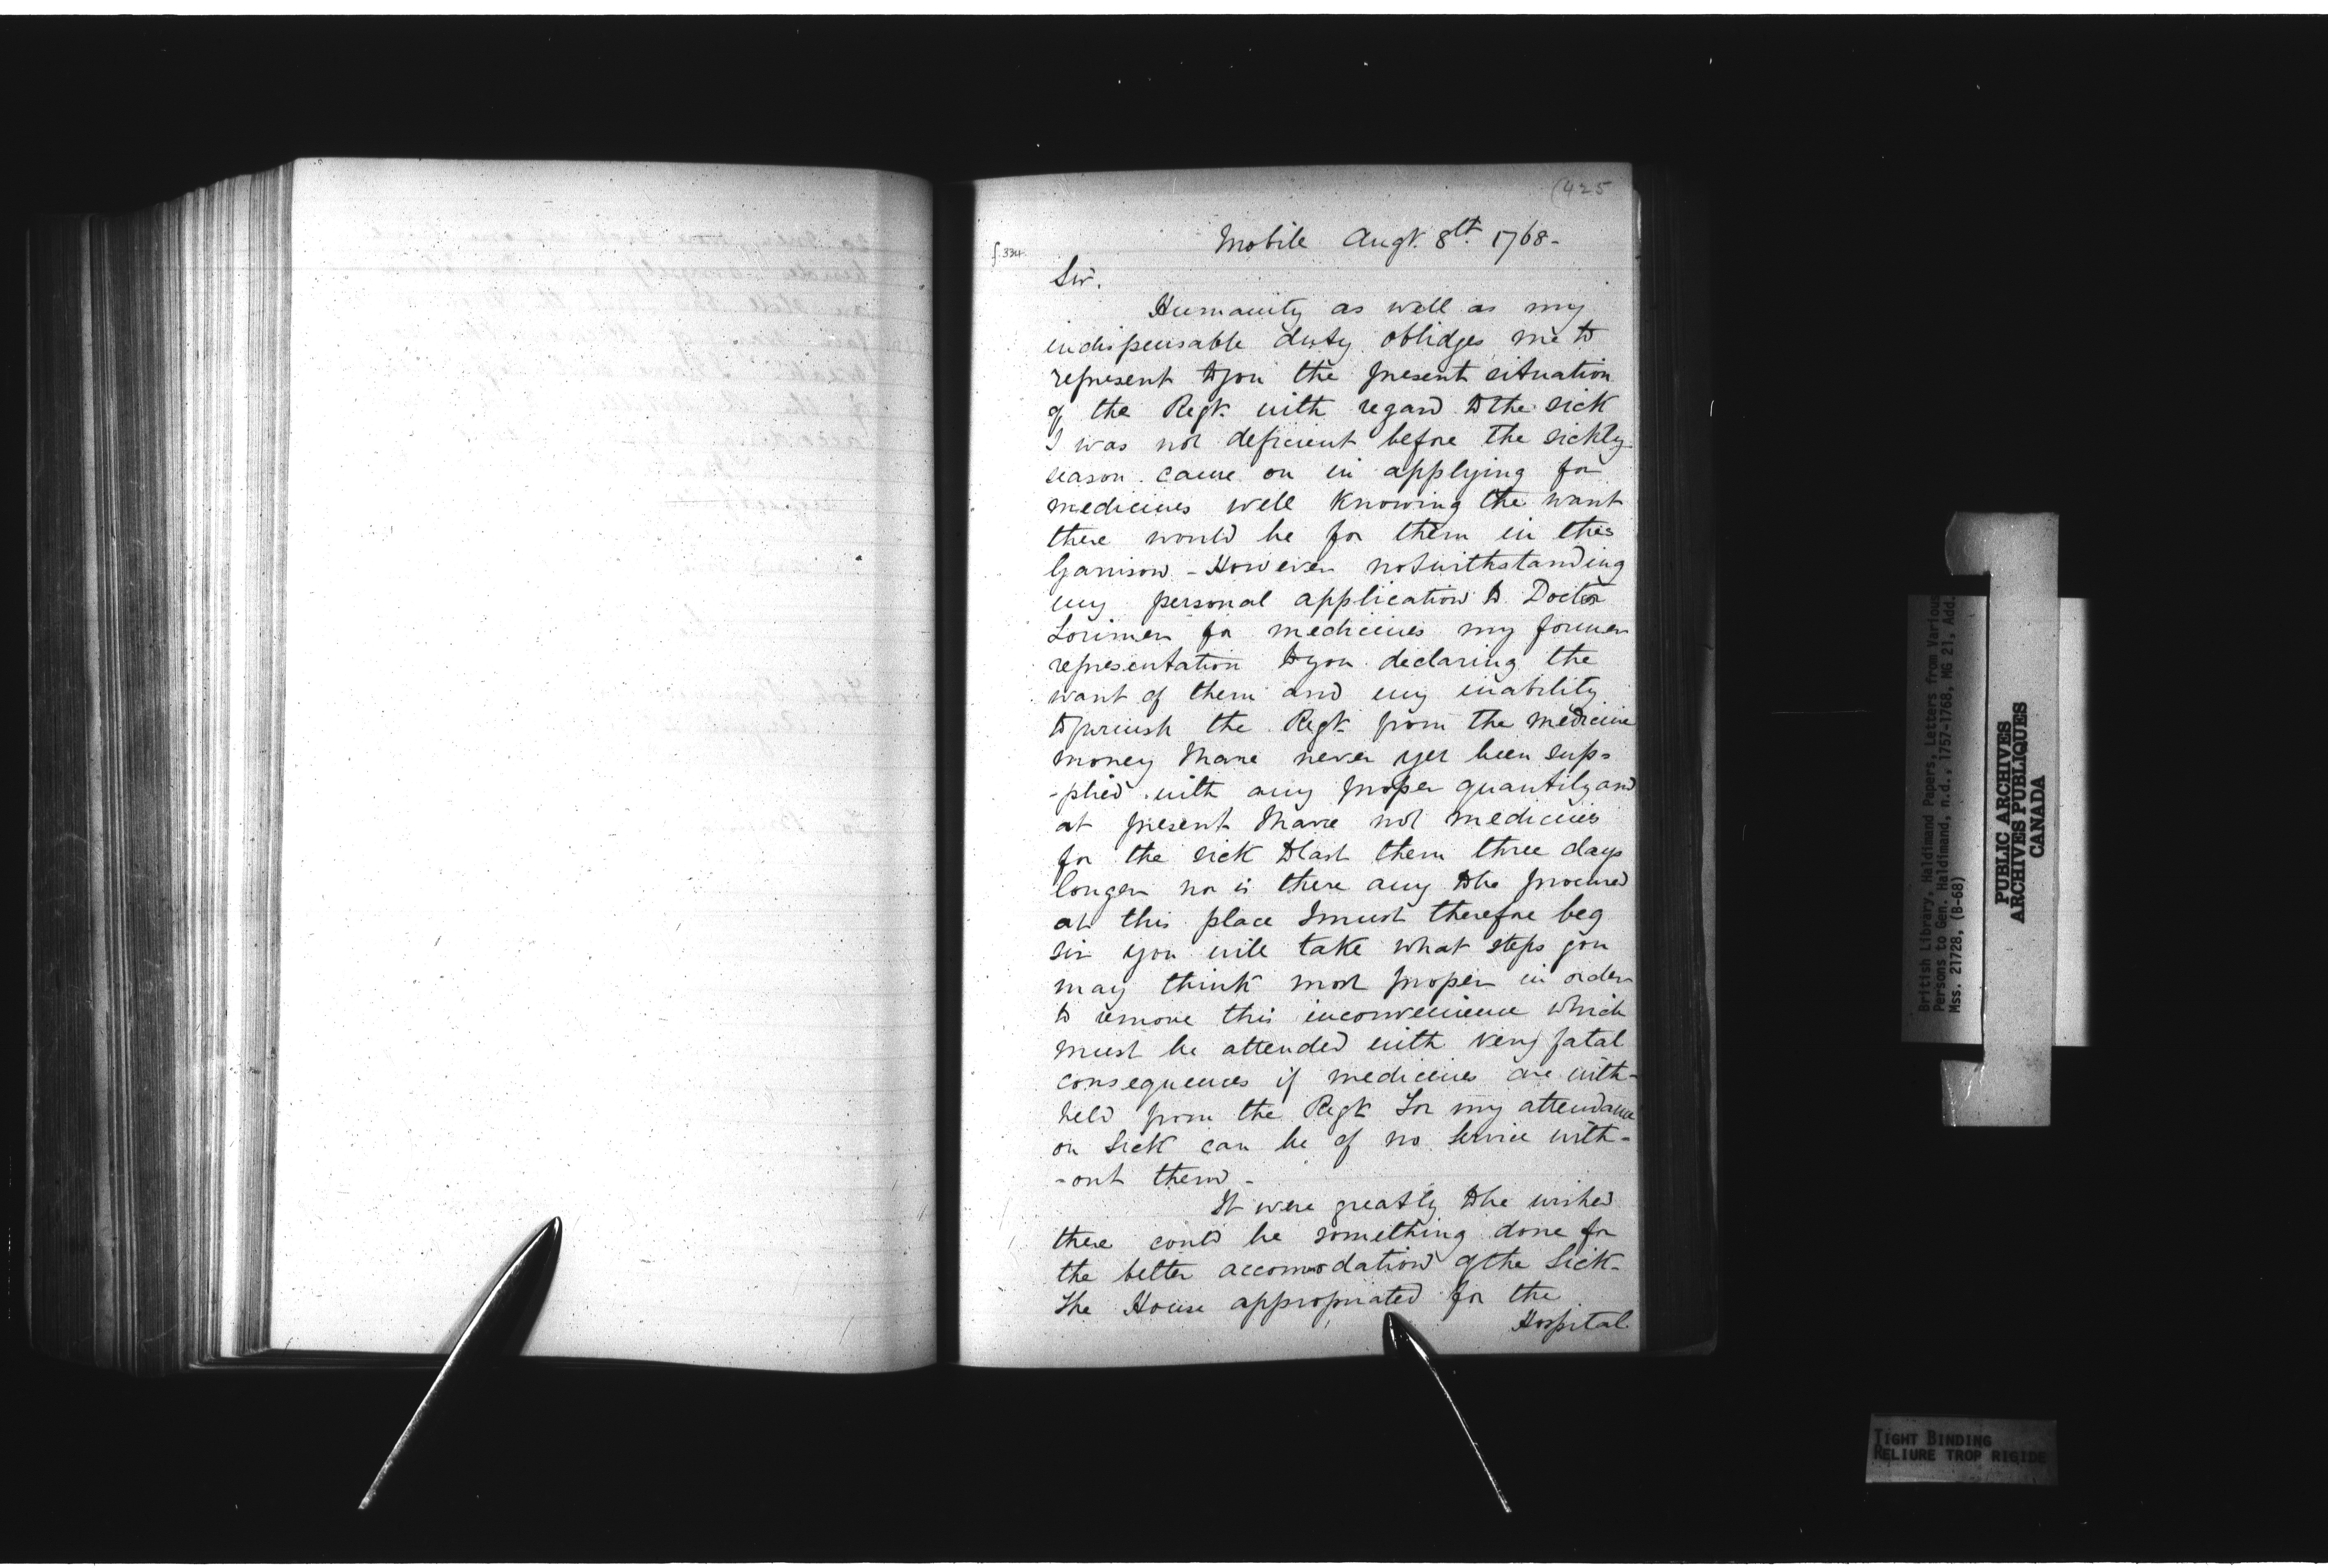 (425
f.334.
Mobile Augt. 8th. 1768-
Sir.
Humanity as well as my
indispensable duty oblidges me to
represent to you the present situation
of the Regt. with regard to the sick
I was not deficient before the sickly
season came on in applying for
medicines well knowing the want
there would be for them in this
Garrison - However notwithstanding
my personal application to Doctor
Lorimer for medicines my former
representation to you declaring the
want of them and my inability
to furnish the Regt. from the medicine
money I have never yet been sup=
-plied with any proper quantity and
at present I have not medicines
for the sick to last them three days
longer nor is there any to be procured
at this place I must therefore beg
sir you will take what steps you
may think most proper in order
to remove this inconvenience which
must be attended with very fatal
consequences if medicines are with-
held from the Regt. for my attendance
on Sick can be of no Service with-
-out them -
It were greatly to be wished
there could be something done for
the better accomodation of the Sick-
The House appropriated for the
Hospital
British Library, Haldimand Papers, Letters from Various
Persons to Gen. Haldimand, n.d., 1757-1768, MG 21, Add.
Mss. 21728, (B-68)
PUBLIC ARCHIVES
ARCHIVES PUBLIQUES
CANADA
TIGHT BINDING
RELIURE TROP RIGIDE